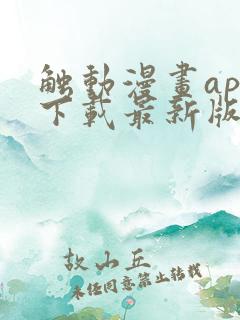 触動漫畫ap
下載最新版
故山丘
未经同意禁止转载